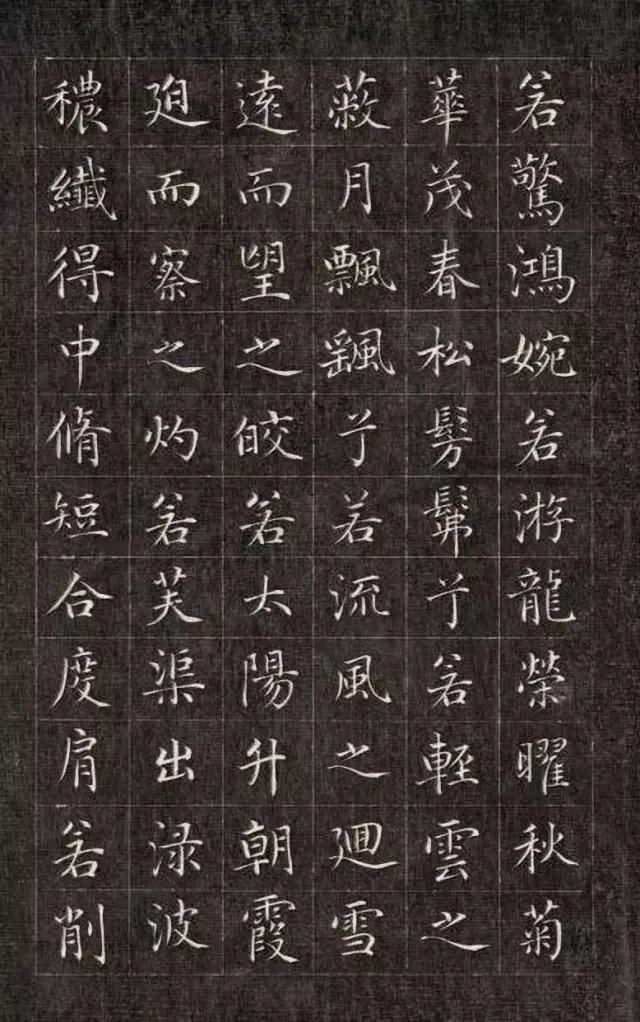 若驚鴻婉若游龍榮曜秋菊
華茂春松髣髴兮若輕雲之
蔽月飄颻兮若流風之廻雪
遠而望之皎若太陽升朝霞
廹而察之灼若芙渠出淥波
穠纖得中脩短合度肩若削